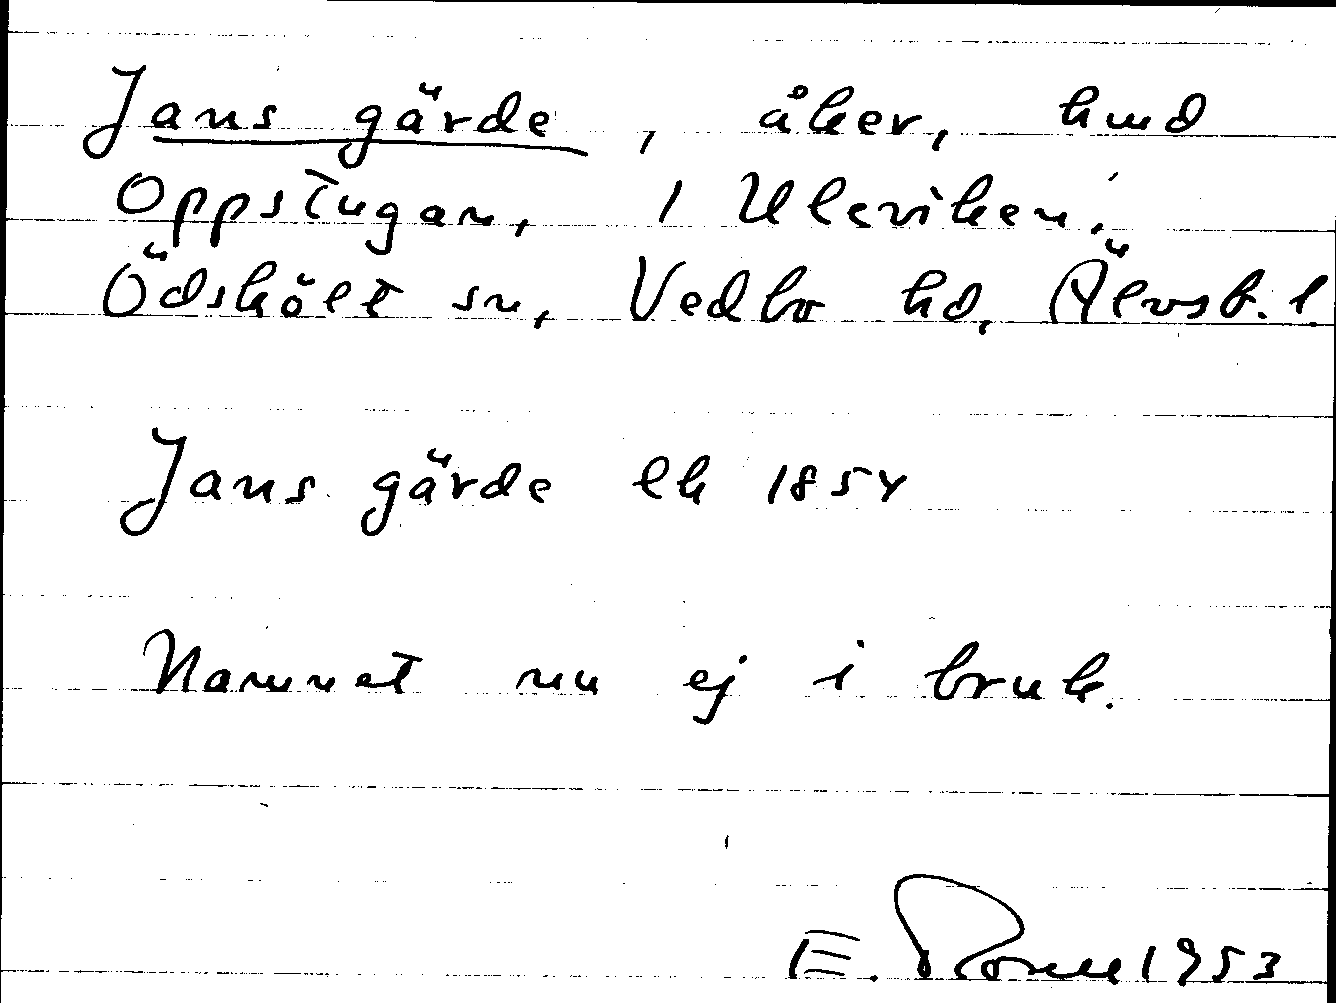 Jans gärde, åker, hmd
Oppstugan, 1 Uleviken.
Ödskölt sn, Vedbo hd, Älvsb. l.
Jans gärde lk 1854
Namnet nu ej i bruk.
E. 1953